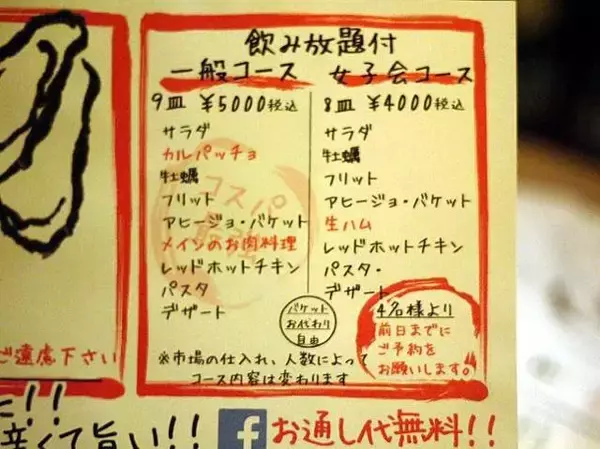 飲み放題付
一般コース
9皿 ¥5000税込
サラダ
カルパッチョ
牡蠣
フリット
アヒージョ・バケット
メインのお肉料理
レッドホットチキン
パスタ
デザート
女子会コース
8皿 ¥4000税込
サラダ
牡蠣
フリット
アヒージョ・バケット
生ハム
レッドホットチキン
パスタ・
デザート
コスパ
最強
バケット
お代わり
自由
4名様より
前日までに
ご予約を
お願いします。
※市場の仕入れ、人数によって
コース内容は変わります
ご遠慮下さい
!!
辛くて旨い!!
f お通し代無料!!